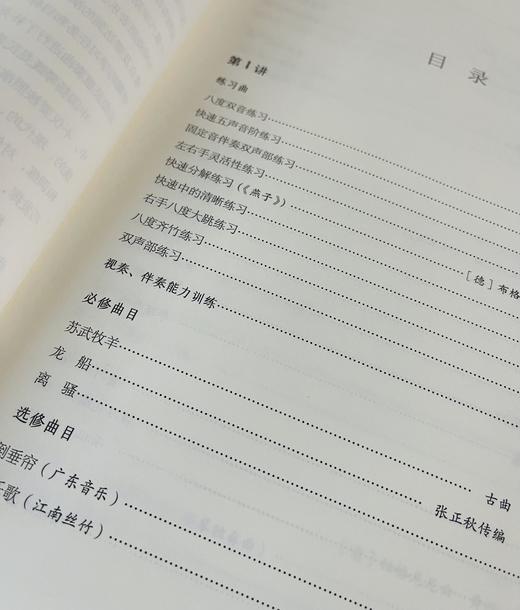 目 录
第1讲
练习曲
八度双音练习
快速五声音阶练习
固定音伴奏双声部练习
左右手灵活性练习
快速分解练习(《燕子》)
快速中的清晰练习
右手八度大跳练习
八度齐竹练习
双声部练习 [德]布格
视奏、伴奏能力训练
必修曲目
苏武牧羊
龙 船
离 骚 古曲
选修曲目 张正秋传编
倒垂帘(广东音乐)
歌(江南丝竹)